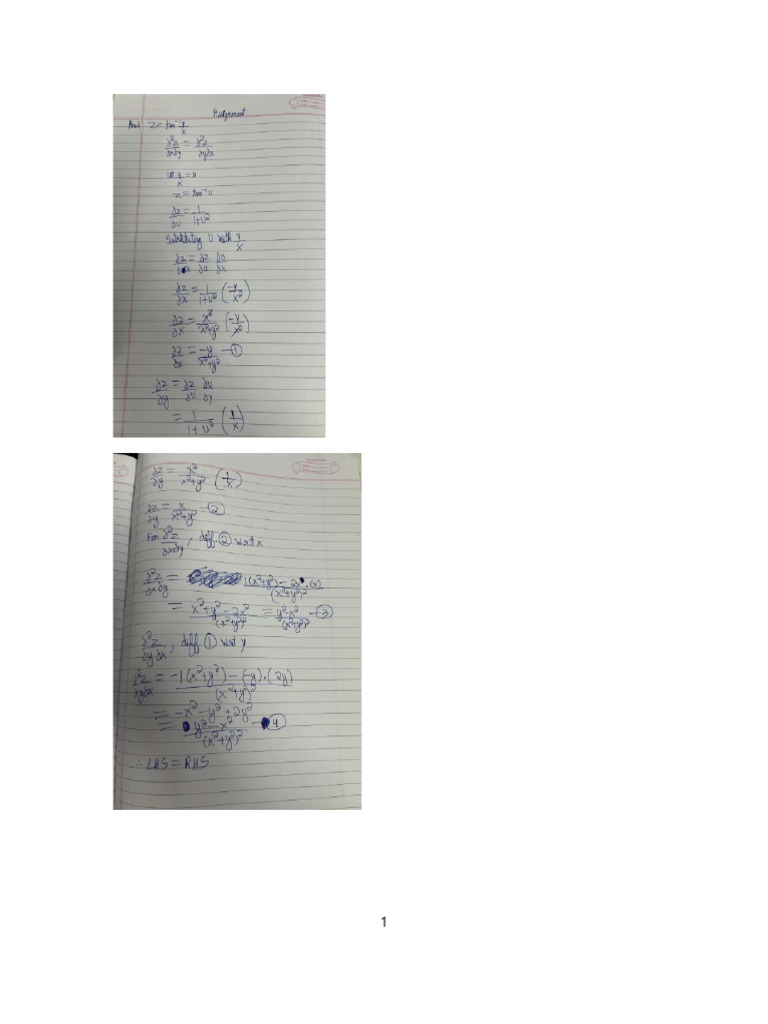 Assignment
Ans1 z = tan⁻¹ y/x
∂²z/∂x∂y = ∂²z/∂y∂x
let y/x = u
z = tan⁻¹ u
∂z/∂u = 1/1+u²
Substituting u with y/x
∂z/∂x = ∂z/∂u ∂u/∂x
∂z/∂x = 1/1+u² (-y/x²)
∂z/∂x = x²/x²+y² (-y/x²)
∂z/∂x = -y/x²+y² - ①
∂z/∂y = ∂z/∂u ∂u/∂y
= 1/1+u² (1/x)
∂z/∂y = x²/x²+y² (1/x)
∂z/∂y = x/x²+y² - ②
For ∂²z/∂x∂y, diff. ② w.r.t x
∂²z/∂x∂y = 1(x²+y²) - 2x·(x)/(x²+y²)²
= x²+y²-2x²/(x²+y²)² = y²-x²/(x²+y²)² - ③
∂²z/∂y∂x, diff ① w.r.t y
∂²z/∂y∂x = -1(x²+y²) - (-y)·(2y)/(x²+y²)²
= -x²-y²+2y²
= y²-x²/(x²+y²)² - ④
∴ LHS = RHS
1